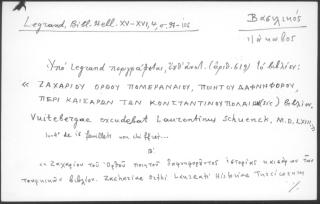 Legrand, Bibl. Hell. XV-XVI, 4, σ. 98-106
Βασιλικός
Ἰάκωβος
Ὑπὸ Legrand περιγράφεται, (ἀριθ. 619) τὸ βιβλίον:
« ΖΑΧΑΡΙΟΥ ΟΡΘΟΥ ΠΟΜΕΡΑΝΙΟΥ, ΠΟΙΗΤΟΥ ΔΑΦΝΗΦΟΡΟΥ,
ΠΕΡΙ ΚΑΙΣΑΡΩΝ ΤΩΝ ΚΩΝΣΤΑΝΤΙΝΟΥΠΟΛΑΙ (sic) βιβλίον.
Vuitebergae excudebat Laurentius Schuenck, M.D.LXIII
in-4° de feuillets non chiffrés...
« Ζαχαρίου τοῦ Ὀρθοῦ ποιητοῦ δαφνηφοροῦντος ἱστορίας
τουρκικῶν βιβλίον. Zachariae Orthi Laureati Historiae Turcicorum